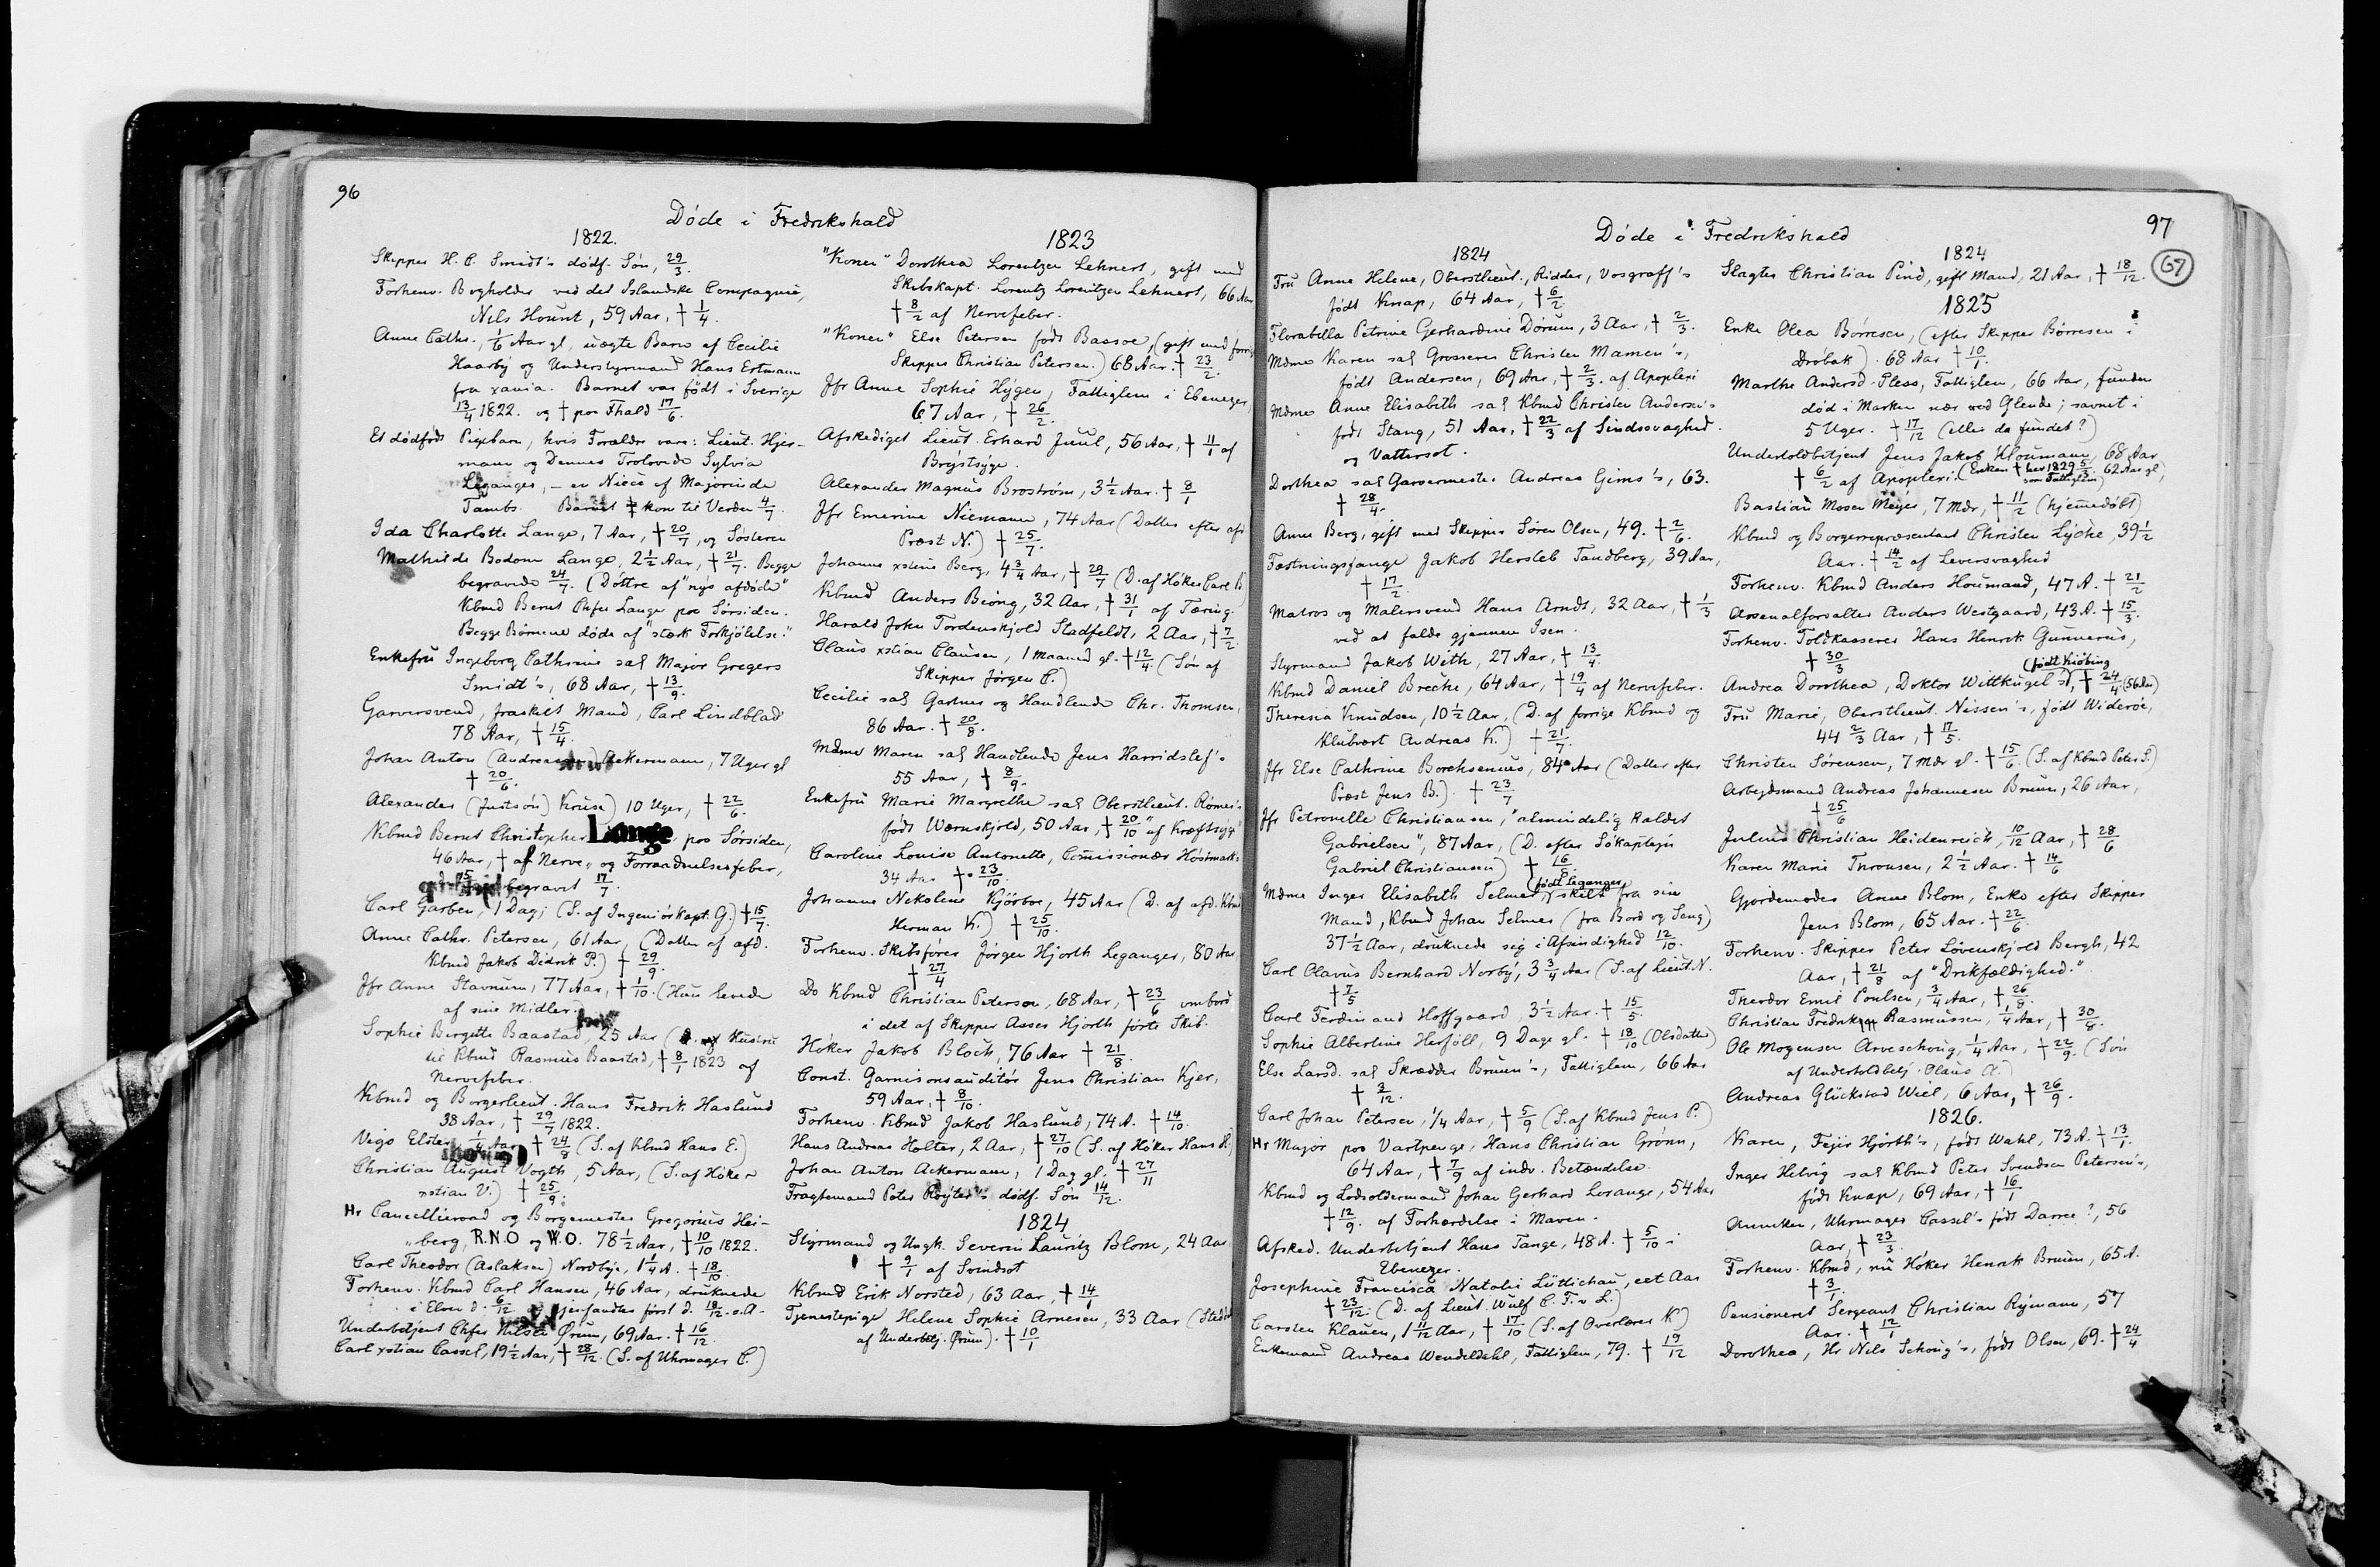 96
Døde i Fredrikshald
1822.
Skipper H. C. Smidt's dødf. Søn, 29/3.
Forhenv. Bogholder ved det Islandske Compagnie,
Nils Hount, 59 Aar, † 1/4.
Anne Cathr., 1/6 Aar gl, uægte Barn af Cecilie
Haarby og Understyrmand Hans Ertmann
fra xania. Barnet var født i Sverige
13/4 1822. og † paa Fhald 17/6.
Et dødfødt Pigebarn, hvis Forældre vare: Lieut. Hjer-
mann og Dennes Trolovede Sylvia
Leganger, – en Niece af Majorinde
Tambs. Barnet kom til Verden 4/7.
Ida Charlotte Lange, 7 Aar, † 20/7, og Søsteren
Mathilde Bodom Lange, 2 1/2 Aar, † 21/7. Begge
begravede 24/7. (Døttre af "nys afdøde"
Kbmd Bernt Chfer Lange paa Sørsiden.
Begge Børnene døde af "stærk Forkjølelse."
Enkefru Ingeborg Cathrine sal Major Gregers
Smidt's, 68 Aar, † 13/9.
Garversvend, fraskilt Mand, Carl Lindblad
78 Aar, † 15/4.
Johan Anton (Andreassen) Ackermann, 7 Uger gl
† 20/6.
Alexander (Justsøn) Kruse) 10 Uger, † 22/6.
Kbmd Bernt Christopher Lange paa Sørsiden,
46 Aar, † af Nerve- og Forraadnelsesfeber,
15/7 begravet 17/7.
Carl Garben, 1 Dag; (S. af Ingeniørkapt. G.) † 15/7.
Anne Cathr. Petersen, 61 Aar, (Datter af afd.
Kbmd Jakob Didrik P.) † 29/9.
Jfr Anne Stavnum, 77 Aar, † 1/10. (Hun levede
af sine Midler.)
Sophie Birgitte Baastad, 25 Aar ( Hustru
til Kbmd Rasmus Baastad, † 8/1 1823 af
Nervefeber.
Kbmd og Borgerlieut. Hans Fredrik Haslund
38 Aar, † 29/7 1822.
Vigo Elster, 1/4 Aar † 24/8 (S. af Kbmd Hans E.)
Christian August Vogth, 5 Aar, (S. af Høker
xstian V.) † 25/9.
Hr Cancelliraad og Borgemester Gregorius Hei-
berg, R.N.O og W.O. 78 1/2 Aar, † 10/10 1822.
Carl Theodor (Aslaksen) Nordbye, 1 1/4 A. † 18/10.
Forhenv. Kbmd Carl Hansen, 46 Aar, druknede
i Elven d. 6/12 og gjenfandtes først d. 18/12 s. A.
Underbetjent Chfer Nilsen Ørum, 69 Aar. † 16/12.
Carl xstian Cassel, 19 1/2 Aar, † 28/12. (S. af Uhrmager C.)
1823
"Konen" Dorothea Lorentzen Lehnert, gift med
Skibskapt. Lorentz Lorentzen Lehnert, 66 Aar
† 8/2 af Nervefeber.
"Konen" Else Petersen født Bassoe, (gift med forrige
Skipper Christian Petersen.) 68 Aar. † 23/2.
Jfr Anne Sophie Hygen, Fattiglem i Ebenezer,
67 Aar, † 26/2.
Afskediget Lieut. Erhard Juul, 56 Aar, † 11/1 af
Brystsyge.
Alexander Magnus Brostrøm, 3 1/2 Aar. † 8/1
Jfr Emerine Niemann, 74 Aar (Datter efter afd
Præst N.) † 25/7.
Johanne xstine Berg, 4 3/4 Aar, † 29/7 (D. af Høker Carl B.
Kbmd Anders Biong, 32 Aar, † 31/1 af Tæring.
Harald John Tordenskjold Stadfeldt, 2 Aar, † 7/2.
Claus xstian Clausen, 1 Maaned gl. † 12/4. (Søn af
Skipper Jørgen C.)
Cecilie sal Gartner og Handlende Chr. Thomsen,
86 Aar. † 20/8.
Mdme Maren sal Handlende Jens Harridslef's
55 Aar, † 8/9.
Enkefru Marie Margrethe sal Oberstlieut. Rømer's
født Wærnskjold, 50 Aar, † 20/10 "af Kræftsyge"
Caroline Louise Antonette, Comissionær Høstmark's
34 Aar † 23/10.
Johanne Nikoline Kjørboe, 45 Aar (D. af afd. Kbmd
Herman K.) † 25/10.
Forhenv. Skibsfører Jørgen Hjorth Leganger, 80 Aar
† 27/4
Do Kbmd Christian Petersen, 68 Aar, † 23/6 ombord
i det af Skipper Asser Hjorth førte Skib.
Høker Jakob Bloch, 76 Aar † 21/8.
Const. Garnisonsauditør Jens Christian Kjer,
59 Aar, † 8/10.
Forhenv. Kbmd Jakob Haslund, 74 A. † 14/10.
Hans Andreas Holter, 2 Aar, † 27/10 (S. af Høker Hans H.)
Johan Anton Ackermann, 1 Dag gl. † 27/11
Fragtemand Peter Røyter's dødf. Søn 14/12.
1824
Styrmand og Ungk. Severin Lauritz Blom, 24 Aar,
† 9/1 af Svindsot
Kbmd Erik Norsted, 63 Aar, † 14/1
Tjenestepige Helene Sophie Arnesen, 33 Aar (Steddt
af Underbetj. Ørum). † 10/1
Døde i Fredrikshald
97
67
1824
Fru Anne Helene, Oberstlieut., Ridder, Vosgraff's
født Knap, 64 Aar, † 6/2.
Florabella Petrine Gerhardine Dørum, 3 Aar, † 2/3.
Mdme Karen sal Grosserer Christen Mamen's,
født Andersen, 69 Aar, † 2/3. af Apoplexi
Mdme Anne Elisabeth sal Kbmd Christen Andersen's
født Stang, 51 Aar, † 22/3 af Sindssvaghed
og Vattersot.
Dorthea sal Garvermester Andreas Gims's, 63.
† 28/4.
Anne Berg, gift med Skipper Søren Olsen, 49. † 2/6.
Fæstningsfange Jakob Hersleb Tandberg, 39 Aar,
† 17/2.
Matros og Malersvend Hans Arndt, 32 Aar, † 1/3
ved at falde gjennem Isen.
Styrmand Jakob With, 27 Aar, † 13/4.
Kbmd Daniel Breche, 64 Aar, † 19/4 af Nervefeber.
Theresia Knudsen, 10 1/2 Aar, (D. af forrige Kbmd og
Klubvært Andreas K.) † 21/7.
Jfr Else Cathrine Borchsenius, 84 Aar (Datter efter
Præst Jens B.). † 23/7
Jfr Petronelle Christiansen, "almindelig kaldet
Gabrielsen", 87 Aar, (D. efter Søkaptejn
Gabriel Christiansen) † 16/8.
Mdme Inger Elisabeth Selmer, (født Leganger) skilt fra sin
Mand, Kbmd Johan Selmer (fra Bord og Seng)
37 1/2 Aar, druknede sig i Afsindighed 12/10.
Carl Olavus Bernhard Norby, 3 3/4 Aar (S. af Lieut. N.
† 7/5
Carl Ferdinand Hoffgaard, 3 1/2 Aar. † 15/5.
Sophie Albertine Herføll, 9 Dage gl. † 18/10 (Olsdatter)
Else Larsd. sal Skrædder Bruun's, Fattiglem, 66 Aar
† 3/12.
Carl Johan Petersen, 1/4 Aar, † 5/9 (S. af Kbmd Jens P.)
Hr Major paa Vartpenge, Hans Christian Grønn,
64 Aar, † 7/9 af indv. Betændelse.
Kbmd og Lodsoldermand Johan Gerhard Lorange, 54 Aar
† 12/9. af Forhærdelse i Maven.
Afsked. Underbetjent Hans Tange, 48 A. † 5/10 i
Ebenezer.
Josephine Francisca Natalie Lüttichau, eet Aar
† 23/12. (D. af Lieut. Wulf C. F. v. L.)
Carsten Klauen, 1 11/12 Aar, † 17/10 (S. af Overlærer K)
Enkemand Andreas Wendeldahl, Fattiglem, 79. † 19/12
1824
Slagter Christian Pind, gift Mand, 21 Aar, † 18/12.
1825
Enke Olea Børresen, (efter Skipper Børresen i
Drøbak). 68 Aar † 10/1.
Marthe Andersd. Pless, Fattiglem, 66 Aar, funden
død i Marken nær ved Glende; savnet i
5 Uger. † 17/12 (eller da fundet?)
Underholdbetjent Jens Jakob Houmann, 68 Aar
† 6/2 af Apoplexi. (Enken † her 1829 5/3. 62 Aar gl,
som Fattiglem)
Bastian Moser Meyer, 7 Mdr, † 11/2 (hjemmedøbt)
Kbmd og Borgerrepræsentant Christen Lyche, 39 1/2
Aar. † 14/2 af Leversvaghed
Forhenv. Kbmd Anders Houmand, 47 A. † 21/2
Arsenalforvalter Anders Westgaard, 43 A. † 15/3.
Forhenv. Toldkasserer Hans Henrik Gunnerus,
† 30/3
(født Kiøbing
Andrea Dorothea, Doktor Wittkugel's, † 24/4. (56 Aar)
Fru Marie, Oberstlieut. Nissen's, født Widerøe,
44 2/3 Aar, † 17/5.
Christen Sørensen, 7 Mdr gl. † 15/6. (S. af Kbmd Peter S.)
Arbejdsmand Andreas Johannesen Bruun, 26 Aar,
† 25/6
Julius Christian Heidenreich, 10/12 Aar, † 28/6
Karen Marie Thronsen, 2 1/2 Aar. † 14/6
Gjordemoder Anne Blom, Enke efter Skipper
Jens Blom, 65 Aar. † 22/6.
Forhenv. Skipper Peter Løvenskjold Bergh, 42
Aar, † 21/8 af "Drikfældighed."
Theodor Emil Poulsen, 3/4 Aar, † 26/8.
Christian Fredriksen Rasmussen, 1/4 Aar, † 30/8.
Ole Mogensen Arveschoug, 1/4 Aar, † 22/9. (Søn
af Underholdbetj. Olaus A.)
Andreas Glückstad Wiel, 6 Aar, † 26/9.
1826.
Karen, Fejer Hjorth's, født Wahl, 73 A. † 13/1.
Inger Helvig sal Kbmd Peter Svendsen Petersen's,
født Knap, 69 Aar, † 16/1
Anniken, Uhrmager Cassel's født Darree?, 56
Aar, † 23/3.
Forhenv. Kbmd, nu Høker Henrik Bruun, 65 A.
† 3/1.
Pensioneret Sergeant Christian Rymann, 57
Aar. † 12/1
Dorothea, Hr Nils Schoug's, født Olsen, 69. † 24/4